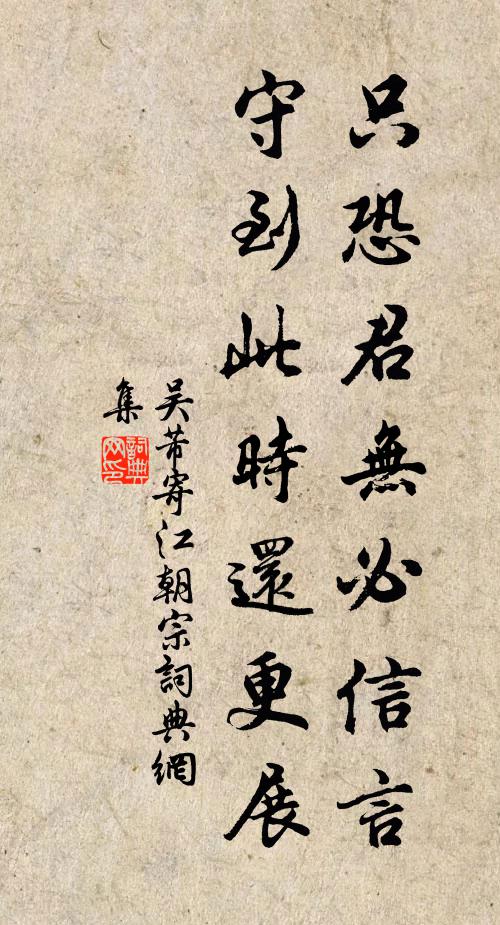 只恐君無必信言
守到此時還更展
吳芾寄江朝宗詞典網
集
詞典
网印